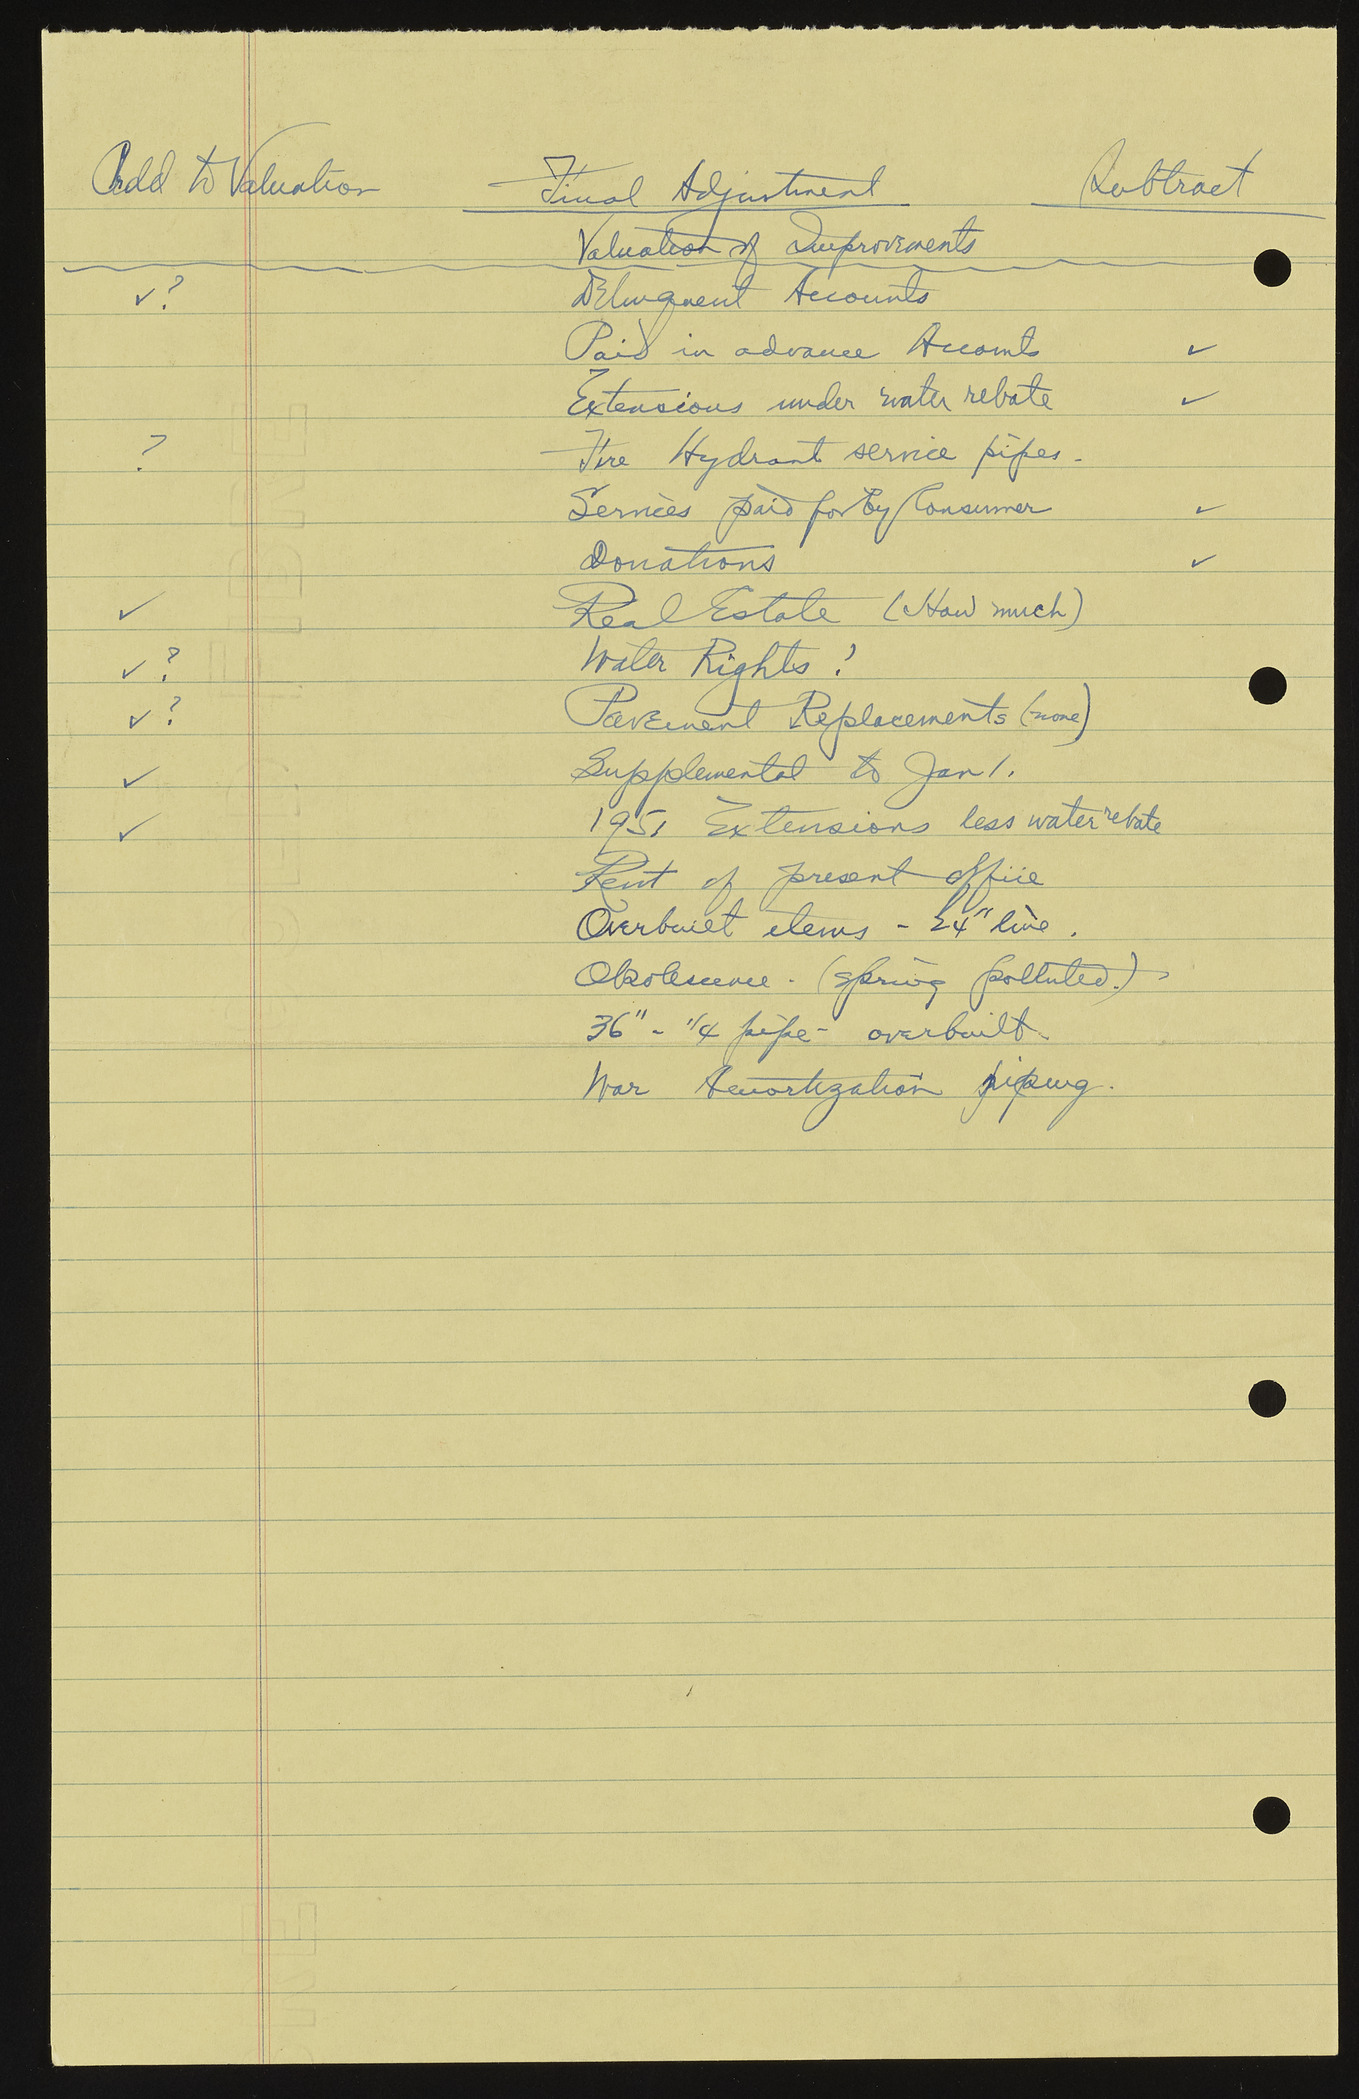 Add to Valuation Final Adjustment Subtract
Valuation of Improvements
✓? Delinquent Accounts
Paid in advance Accounts ✓
Extensions under water rebate ✓
? Fire Hydrant service pipes -
Services paid for by Consumer ✓
Donations ✓
✓ Real Estate (How much)
✓? Water Rights ?
✓? Pavement Replacements (none)
✓ Supplemental to Jan 1.
✓ 1951 Extensions less water rebate
Rent of present office
Overbuilt items - 24" line .
Obsolescence - (spring polluted.)
36" - 1/4 pipe - overbuilt
War Amortization piping.